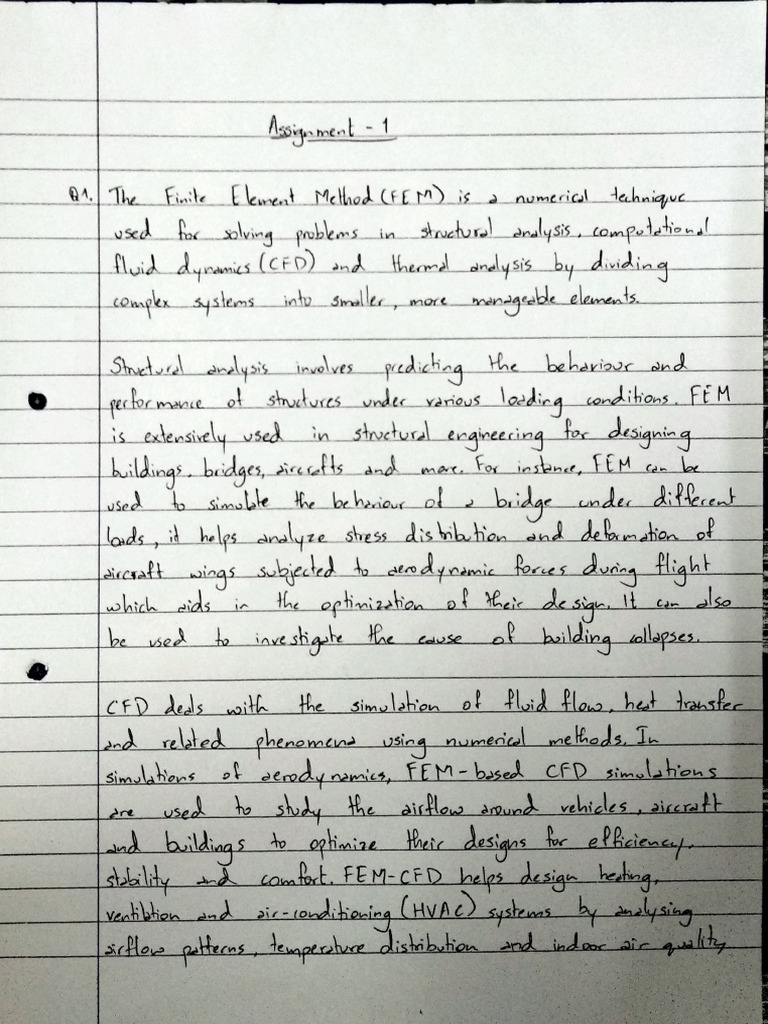 Assignment - 1
Q1. The Finite Element Method (FEM) is a numerical technique
used for solving problems in structural analysis, computational
fluid dynamics (CFD) and thermal analysis by dividing
complex systems into smaller, more manageable elements.
Structural analysis involves predicting the behaviour and
performance of structures under various loading conditions. FEM
is extensively used in structural engineering for designing
buildings, bridges, aircrafts and more. For instance, FEM can be
used to simulate the behaviour of a bridge under different
loads, it helps analyze stress distribution and deformation of
aircraft wings subjected to aerodynamic forces during flight
which aids in the optimization of their design. It can also
be used to investigate the cause of building collapses.
CFD deals with the simulation of fluid flow, heat transfer
and related phenomena using numerical methods. In
simulations of aerodynamics, FEM-based CFD simulations
are used to study the airflow around vehicles, aircraft
and buildings to optimize their designs for efficiency,
stability and comfort. FEM-CFD helps design heating,
ventilation and air-conditioning (HVAC) systems by analysing
airflow patterns, temperature distribution and indoor air quality